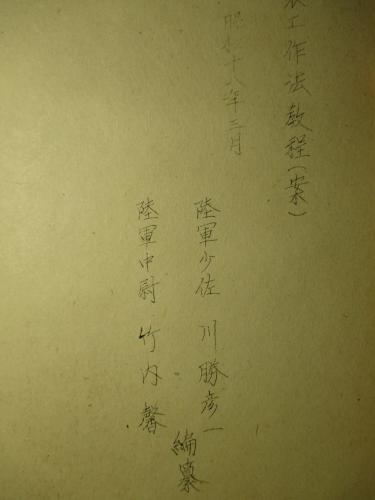 工作法教程(案)
昭和十八年三月
陸軍少佐 川勝彦一
陸軍中尉 竹内馨
編纂